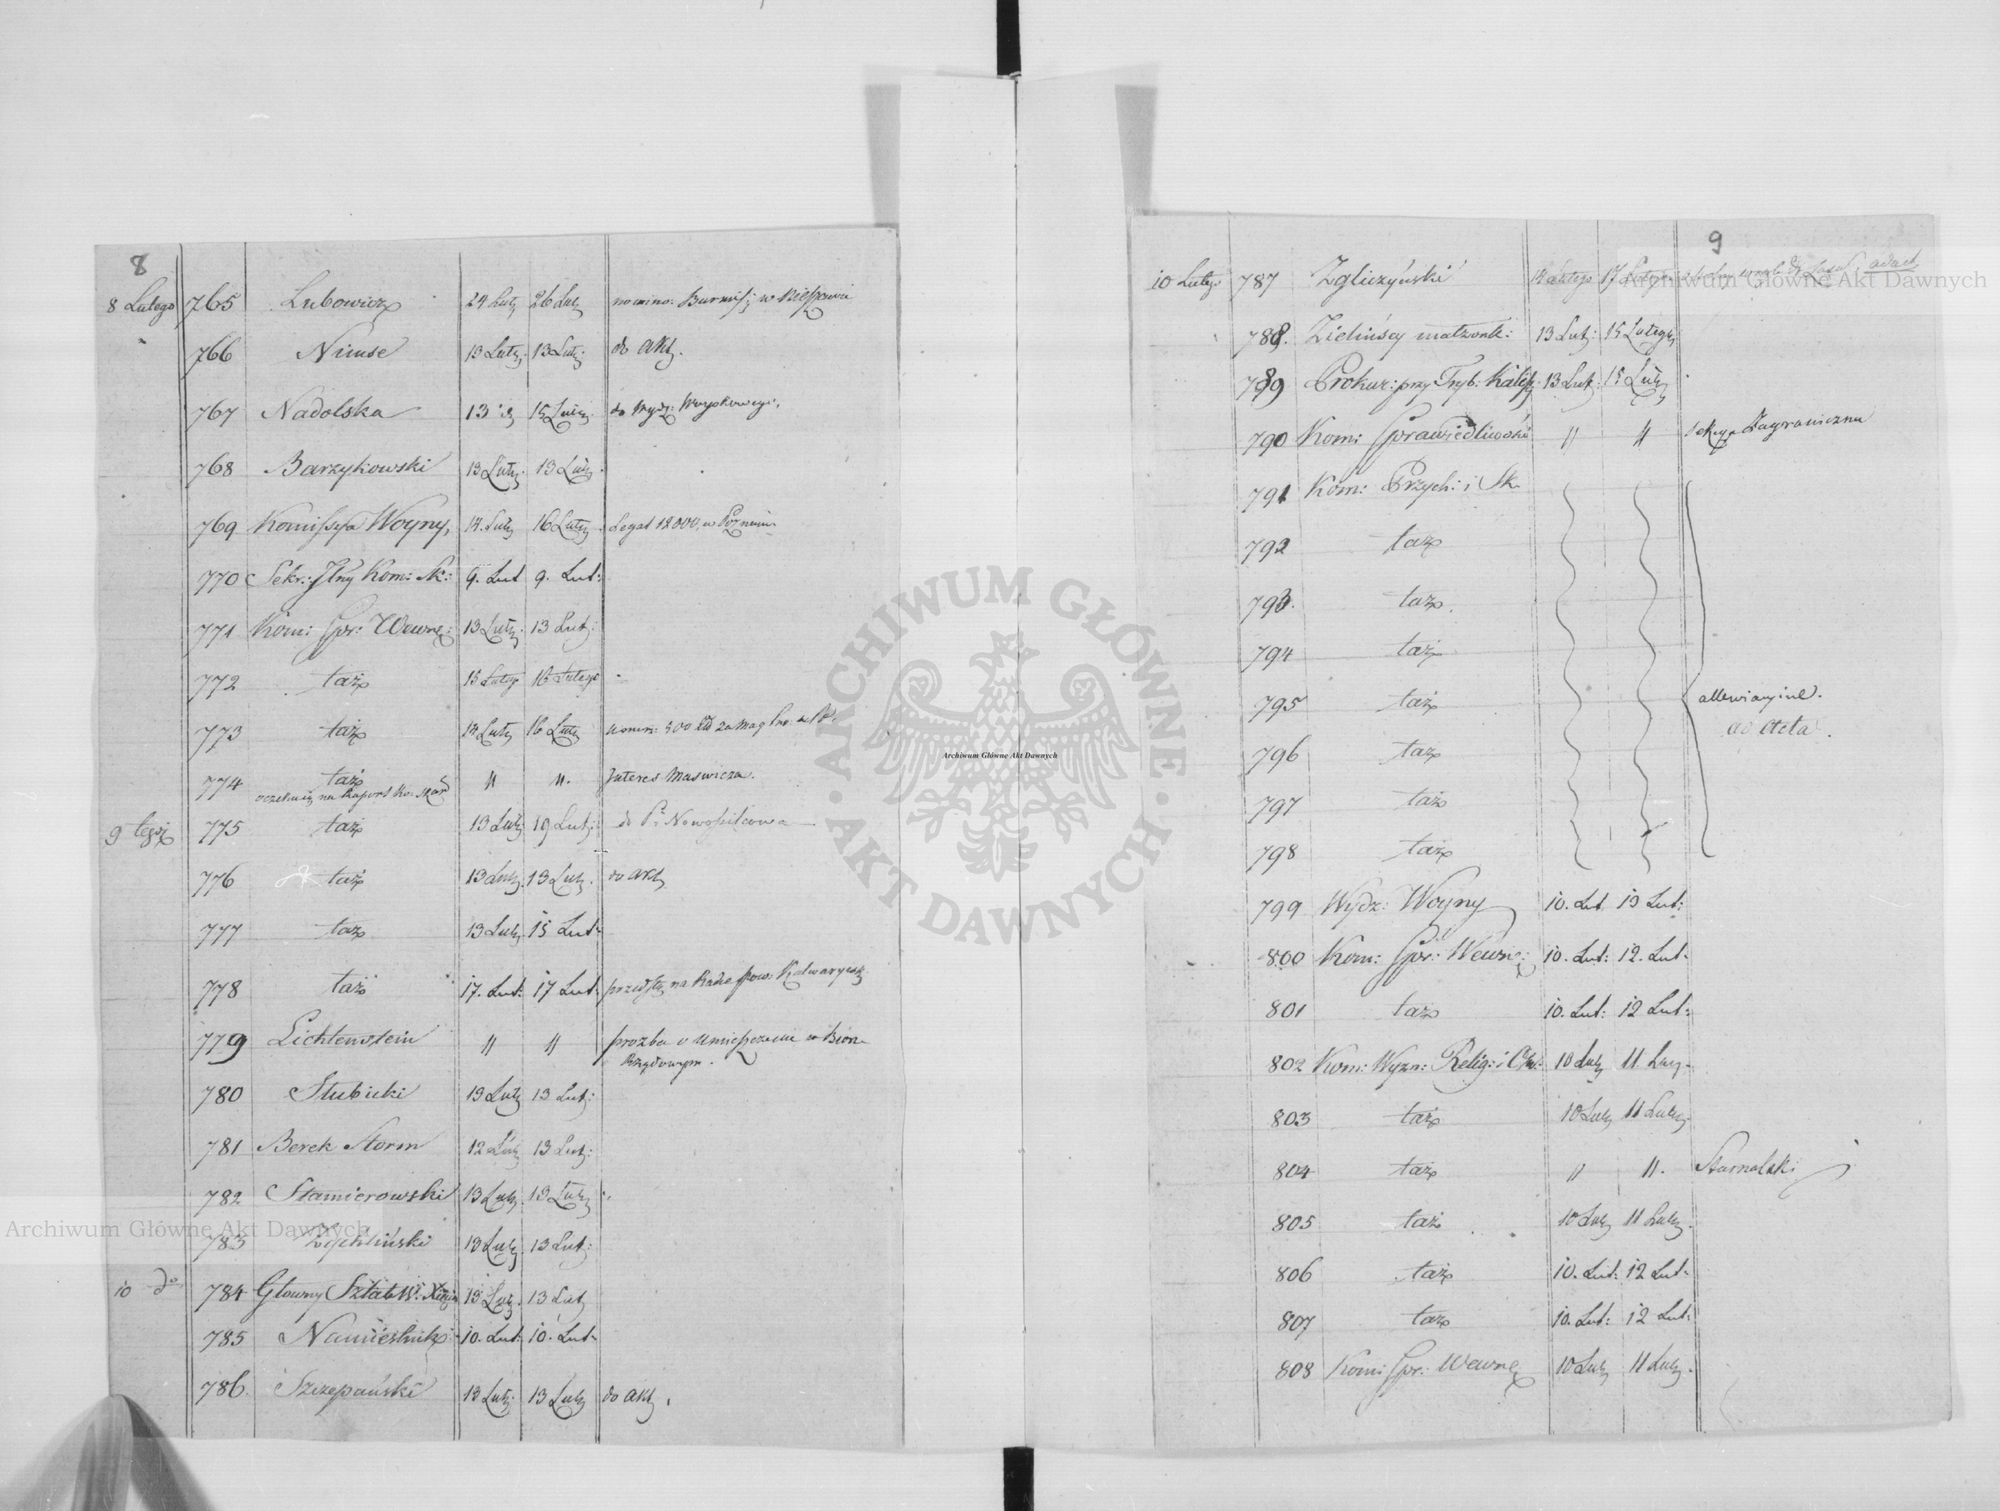 8
8 Lutego 765 Lubowicz 24 Lut 26 Lut
766 Niuse 13 Luty. 13 Luty. do akt.
767 Nadolska 13 15 Luty. do Wydz: Woyskowego.
768 Barzykowski 13 Luty. 13 Luty
769 Komissya Woyny, 14 Luty 16 Luty Legat 12000, w Poznaniu
770 Sekr: Jlny Kom: Sk: 9. Lut 9. Lut:
771 Kom: Spr: Wewnę: 13 Luty. 13 Lut:
772 taż 15 Luty 16 Lutego
773 taż 14 Luty 16 Luty
774 taż " ". Interes
oczekuię na Raport Ko: Skar
9 tegoż 775 taż 13 Luty 19 Lut: do Pa Nowosilcowa
776 taż 13 Luty. 13 Luty. do akt
777 taż 13 Luty 15 Lut:
778 taż 17. Lut: 17 Lut: na Radcę pow: Kalwaryisk
779 Lichtenstein " " prozba o umieszczenie w Biórze
Rządowym.
780 Słubicki 13 Luty 13 Lut:
781 Berek Storm 12 Luty 13 Lut:
782 Stamierowski 13 Luty 13 Luty
783 Zychliński 13 Luty 13 Lut:
10 do 784 Głowny Sztab W: Xięcia 13 Luty. 13 Lut
785 Namiestnik 10. Lut: 10. Lut:
786. Szczepański 13 Luty. 13 Luty do akt.
9
10 Lutego 787 Zgliczyński 14 Lutego 17 Lutego
788. Zielińscy małżonk: 13 Lut: 15 Lutego
789 Prokur: przy Tryb: Kalisk: 13 Lut: 15 Luty
790 Kom: Sprawiedliwości " " Zagraniczna
791 Kom: Przych: i Sk.
792 taż
793. taż.
794 taż
795 taż
ad Acta.
796 taż
797 taż
798 taż
799 Wydz: Woyny 10. Lut 13 Lut:
800 Kom: Spr: Wewnę: 10. Lut: 12. Lut.
801 taż 10. Lut: 12 Lut:
802 Kom: Wyzn: Relig: i Ośw: 10 Luty 11 Luty
803 taż 10 Luty 11 Luty
804 taż " ". Starnalski
805 taż 10 Luty 11 Luty.
806 taż 10. Lut: 12 Lut.
807 taż 10. Lut: 12 Lut:
808 Kom: Spr: Wewnę 10 Luty 11 Luty.
ARCHIWUM GŁÓWNE
AKT DAWNYCH
Archiwum Główne Akt Dawnych
Archiwum Główne Akt Dawnych
Archiwum Główne Akt Dawnych